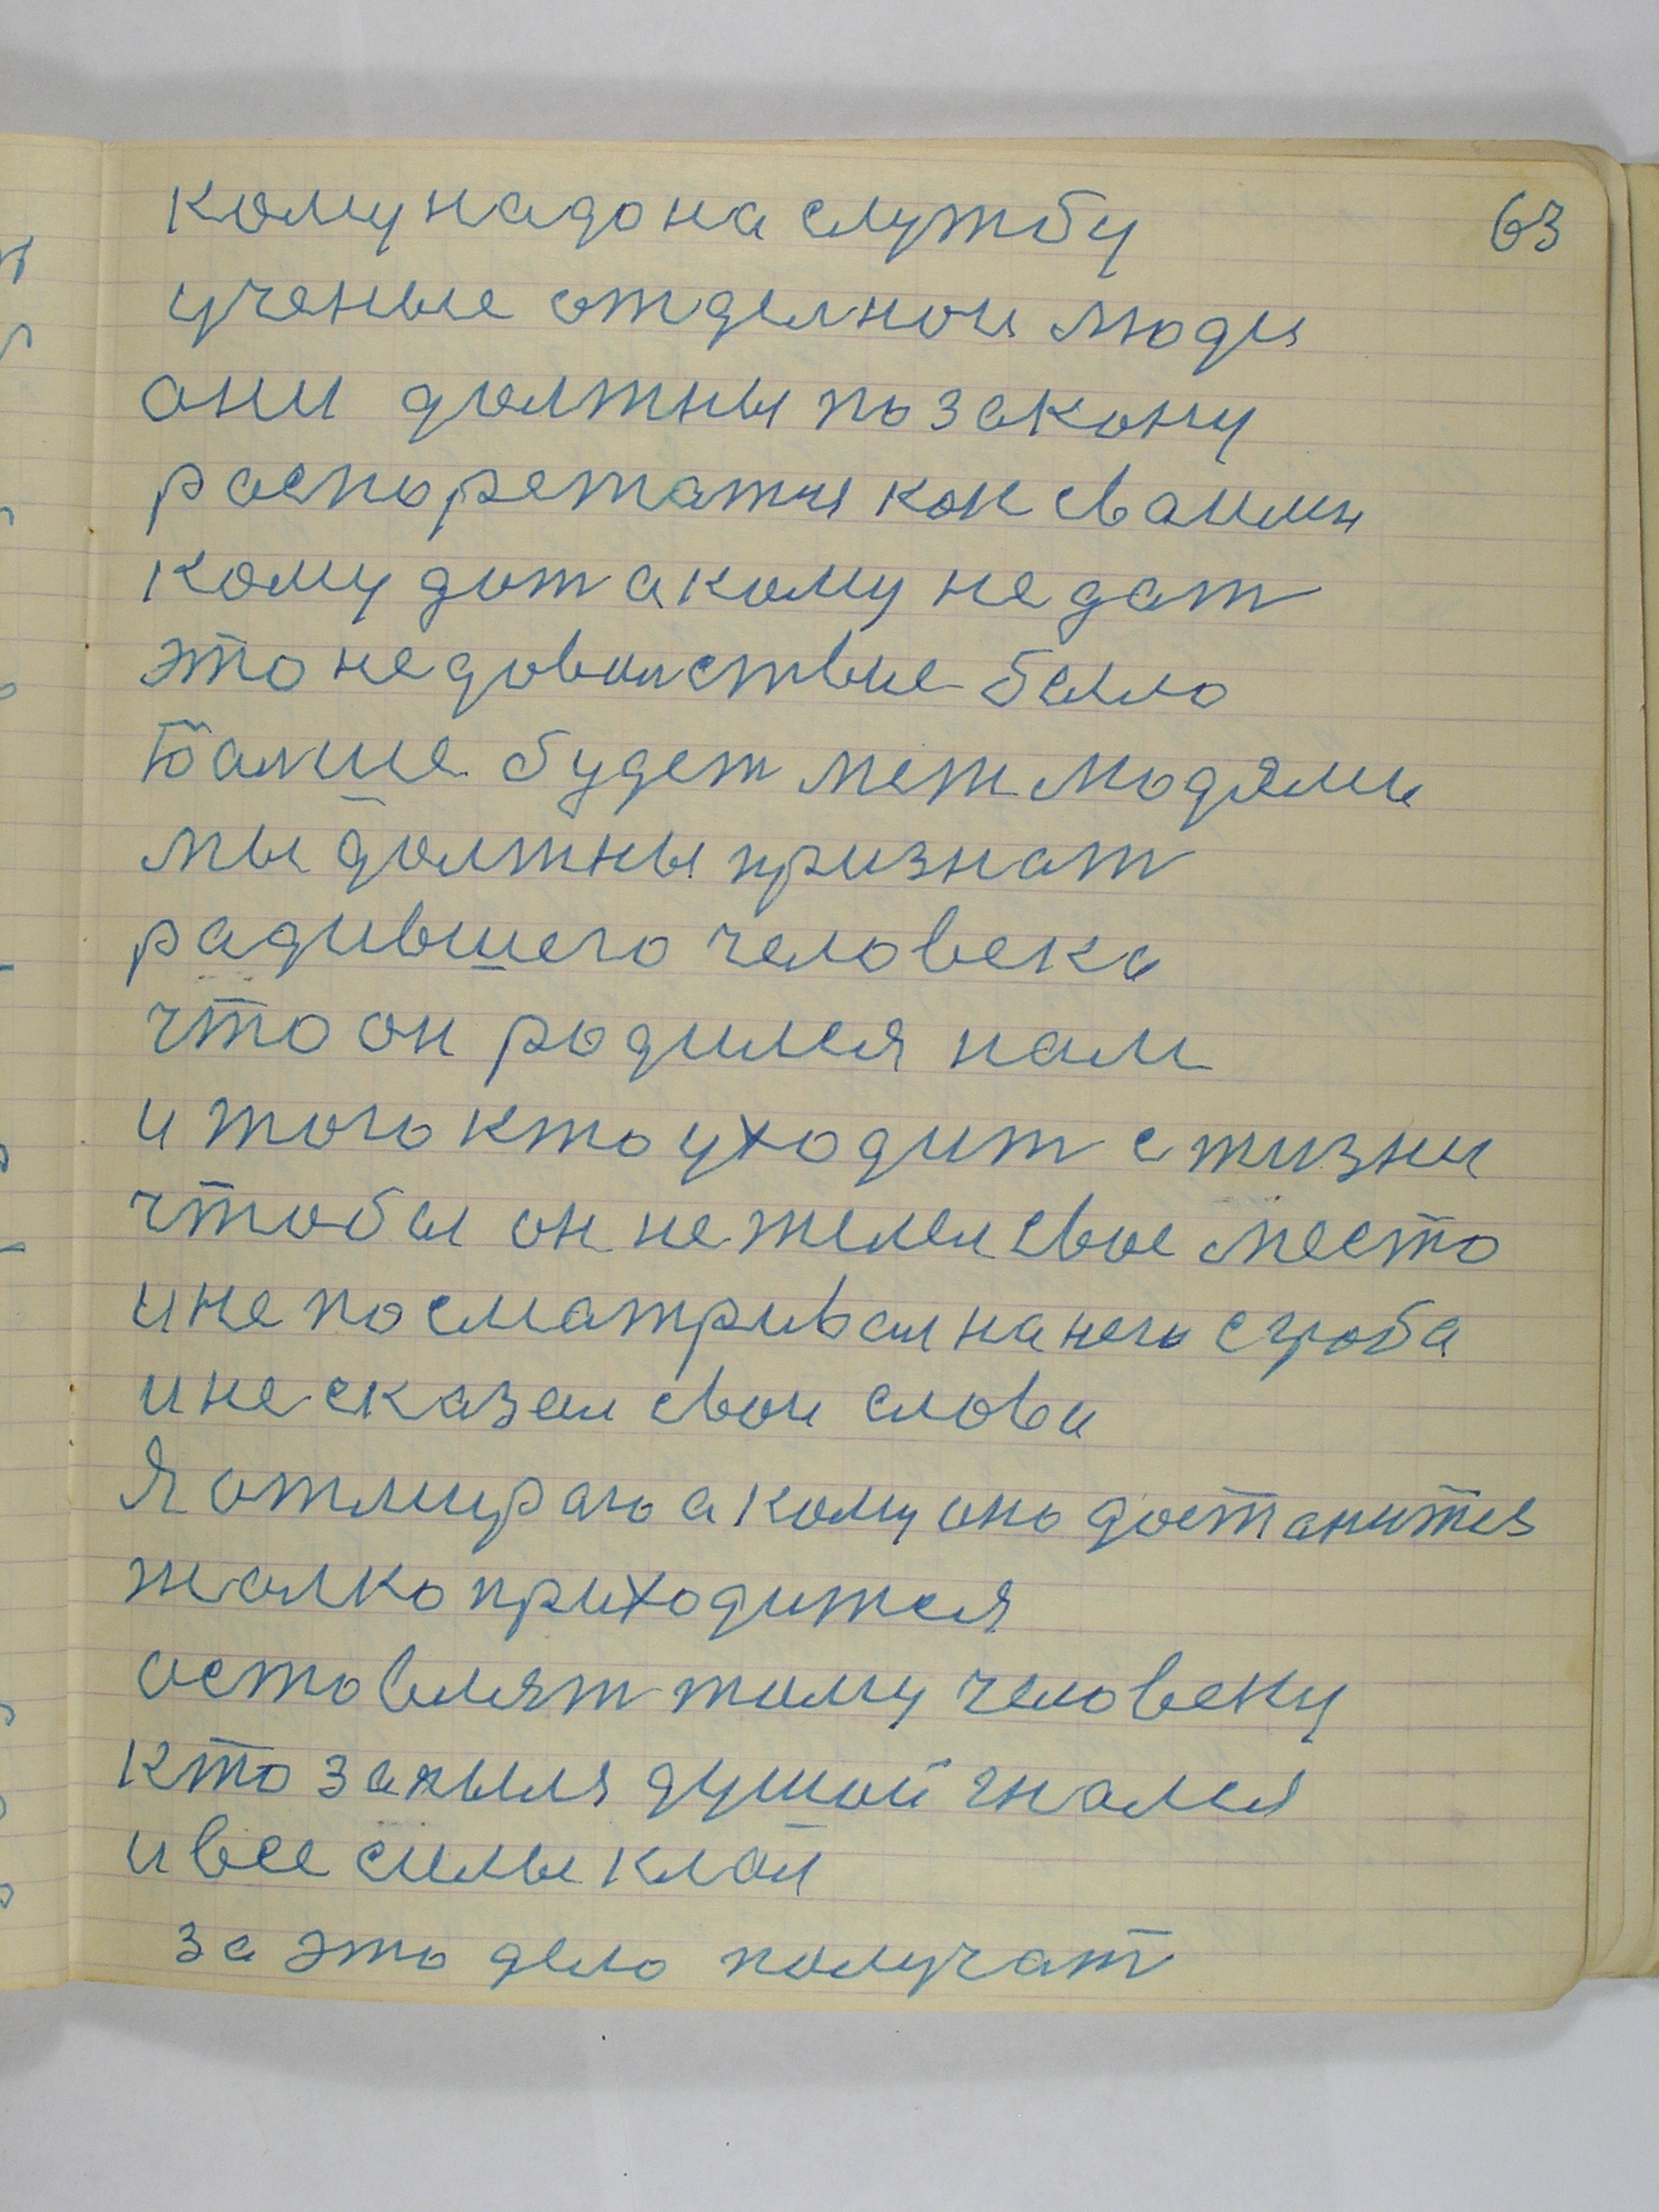 кому надо на службу 63
ученые отделнои люди
они должны по закону
распорежатия как сваими
кому дат а кому не дат
это недовольствие было
балшие будет меж людями
мы должны признат
радившего человека
что он родился нам
и того кто уходит с жизни
чтобы он не жилел свое место
и не посматривал на него с гроба
и не сказал свои слова
Я отмираю а кому оно достанится
жалко приходится
оставлят тому человеку
кто за душой гнался
и все силы клал
за это дело получат